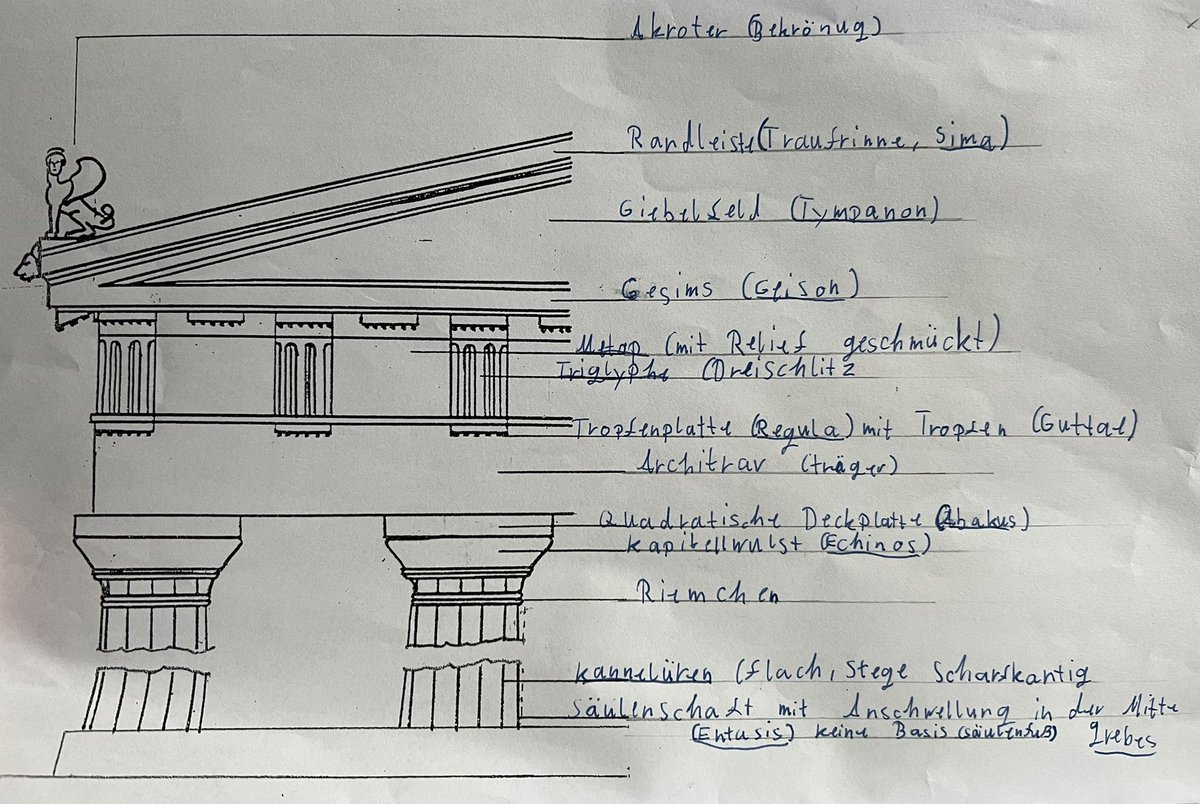 Akroter (Bekrönug)
Randleiste (Traufrinne, Sima)
Giebelfeld (Tympanon)
Gesims (Geison)
Metop (mit Relief geschmückt)
Triglyphe (Dreischlitz
Tropfenplatte (Regula) mit Tropfen (Guttae)
Architrav (träger)
Quadratische Deckplatte (Abakus)
kapitellwulst (Echinos)
Riemchen
kannelüren (flach, Stege Scharfkantig
säulenschaft mit Anschwellung in der Mitte
(Entasis) keine Basis (säulenfuß)